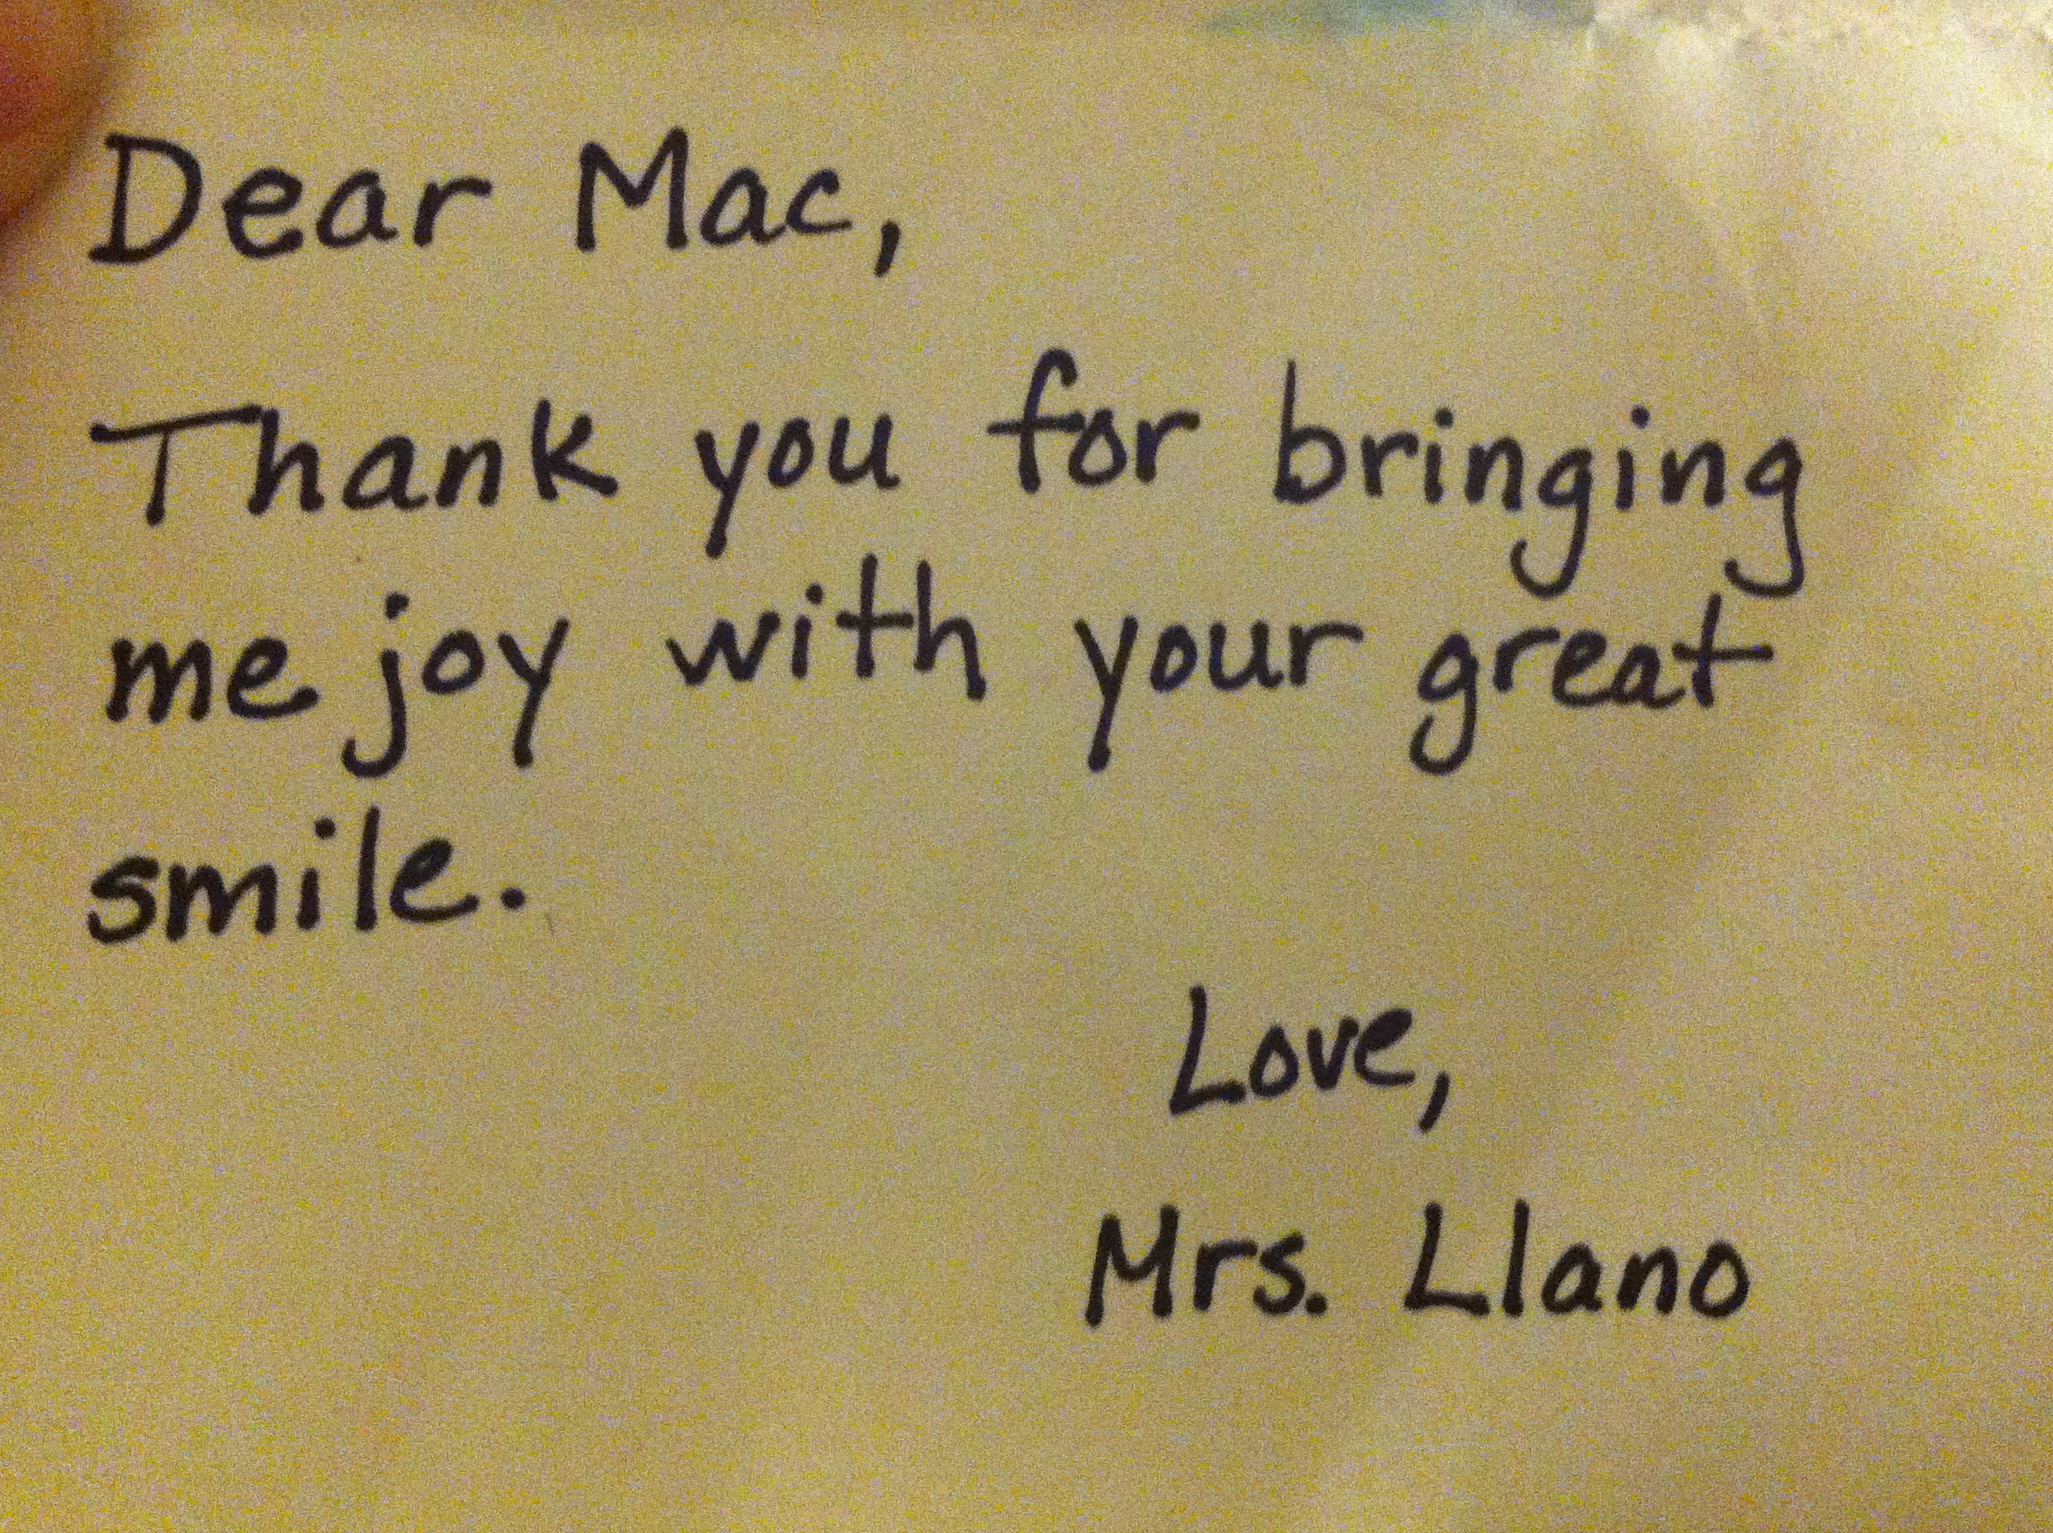 Dear Mac,
Thank you for bringing
me joy with your great
smile.
Love,
Mrs. Llano